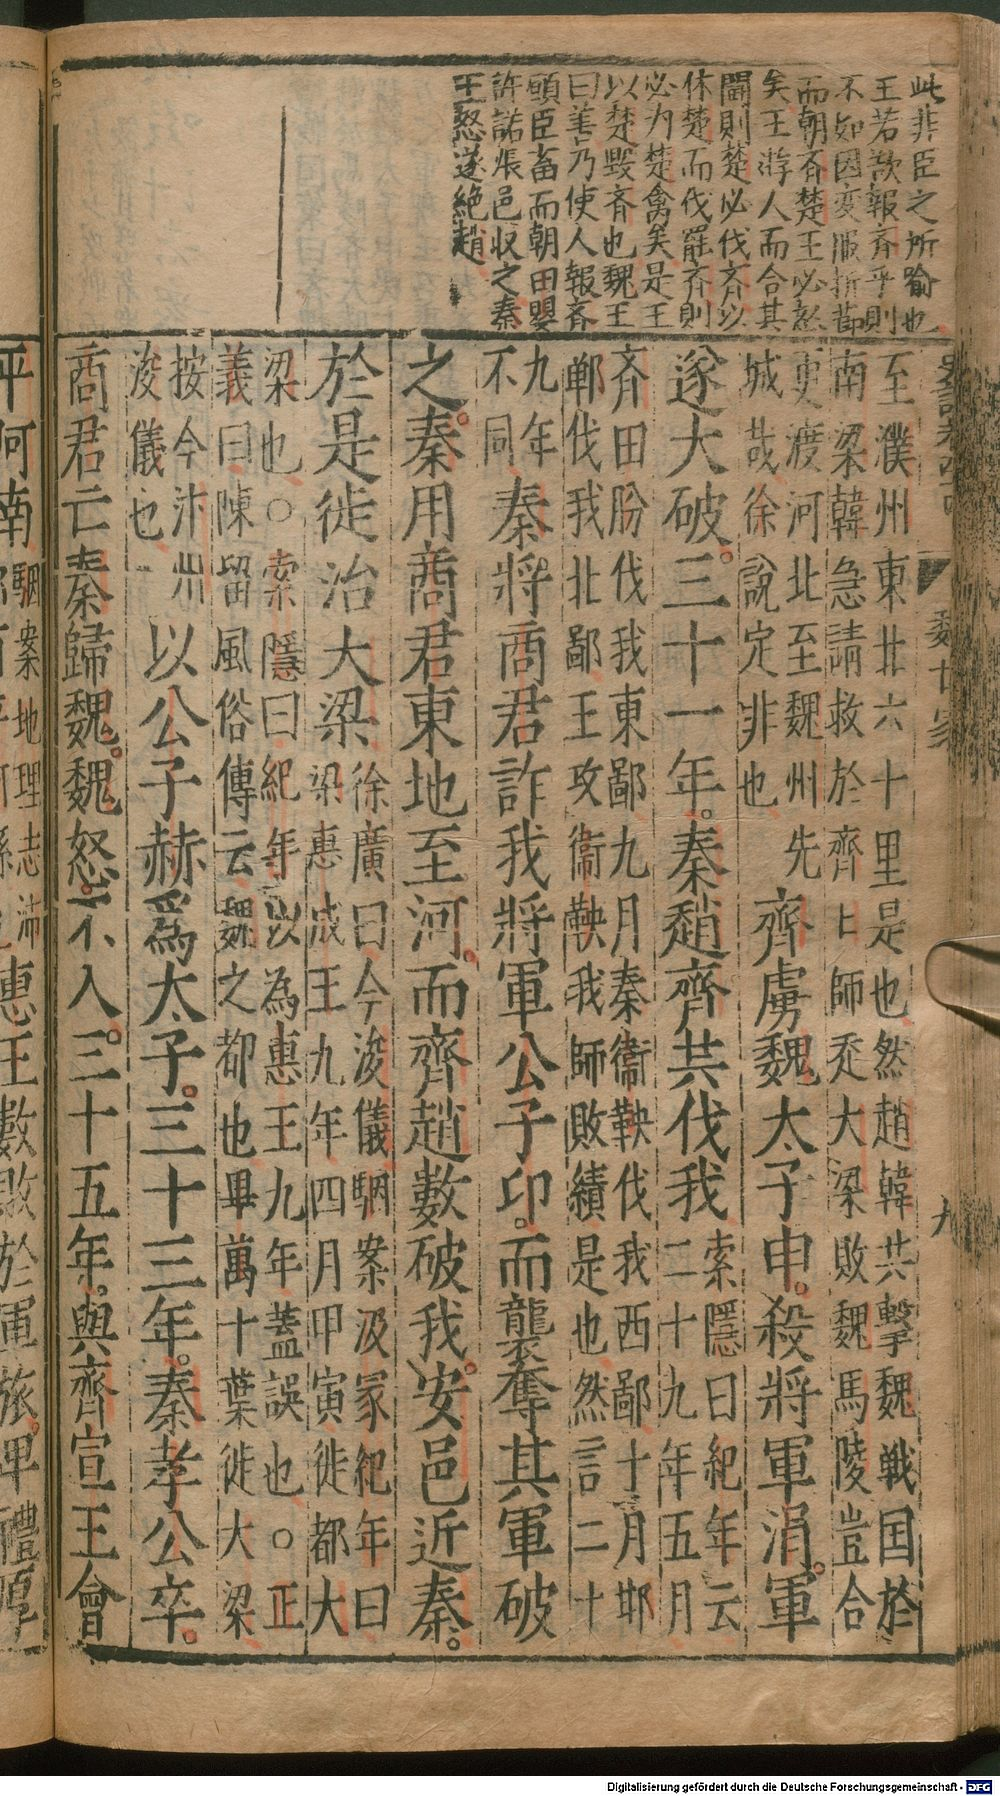 此非臣之所喻也
王若欲報齊乎則
不如因変服折節
而朝齐楚王必怒
矣王游人而合其
闘則楚必伐齐以
休楚而伐罷齐則
必为楚禽矣是王
以楚毀齐也魏王
曰善乃使人報齐
頭臣畜而朝田嬰
許諾張邑収之秦
王怒遂絶趙
至濮州東北六十里是也然趙韓共擊魏戦国於
南梁韓急請救於齊七師走大梁敗魏馬陵豈合
更渡河北至魏州先
城哉徐說定非也
齊虜魏太子申殺將軍涓軍
遂大破三十一年秦趙齊共伐我
索隱曰紀年云
二十九年五月
齐田肦伐我東鄙九月秦衞鞅伐我西鄙十月邯
郸伐我北鄙王攻衞鞅我師敗績是也然言二十
九年
不同
秦將商君詐我將軍公子卬而襲奪其軍破
之秦用商君東地至河而齊趙數破我安邑近秦
於是徙治大梁
徐廣曰今浚儀駰案汲冢紀年曰
梁惠成王九年四月甲寅徙都大
梁也○索隱曰紀年以為惠王九年蓋誤也○正
義曰陳留風俗傳云魏之都也畢萬十葉徙大梁
按今汴州
浚儀也
以公子赫爲太子三十三年秦孝公卒
商君亡秦歸魏魏怒不入三十五年與齊宣王會
平阿南
駰案地理志沛
惠王數敗於軍旅卑禮厚
魏世家
九
Digitalisierung gefördert durch die Deutsche Forschungsgemeinschaft - DFG